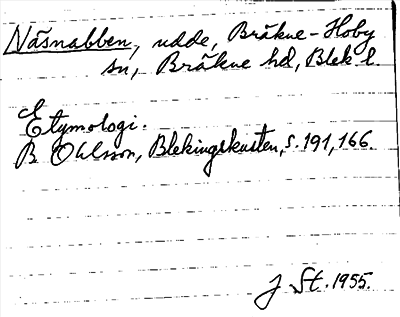 Näsnabben, udde, Bräkne-Hoby
sn, Bräkne hd, Blek l.
Etymologi.
B Ohlsson, Blekingskusten, s. 191, 166.
J St. 1955.